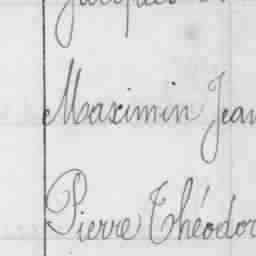 Jacques
Maximin Jean
Pierre Théodor